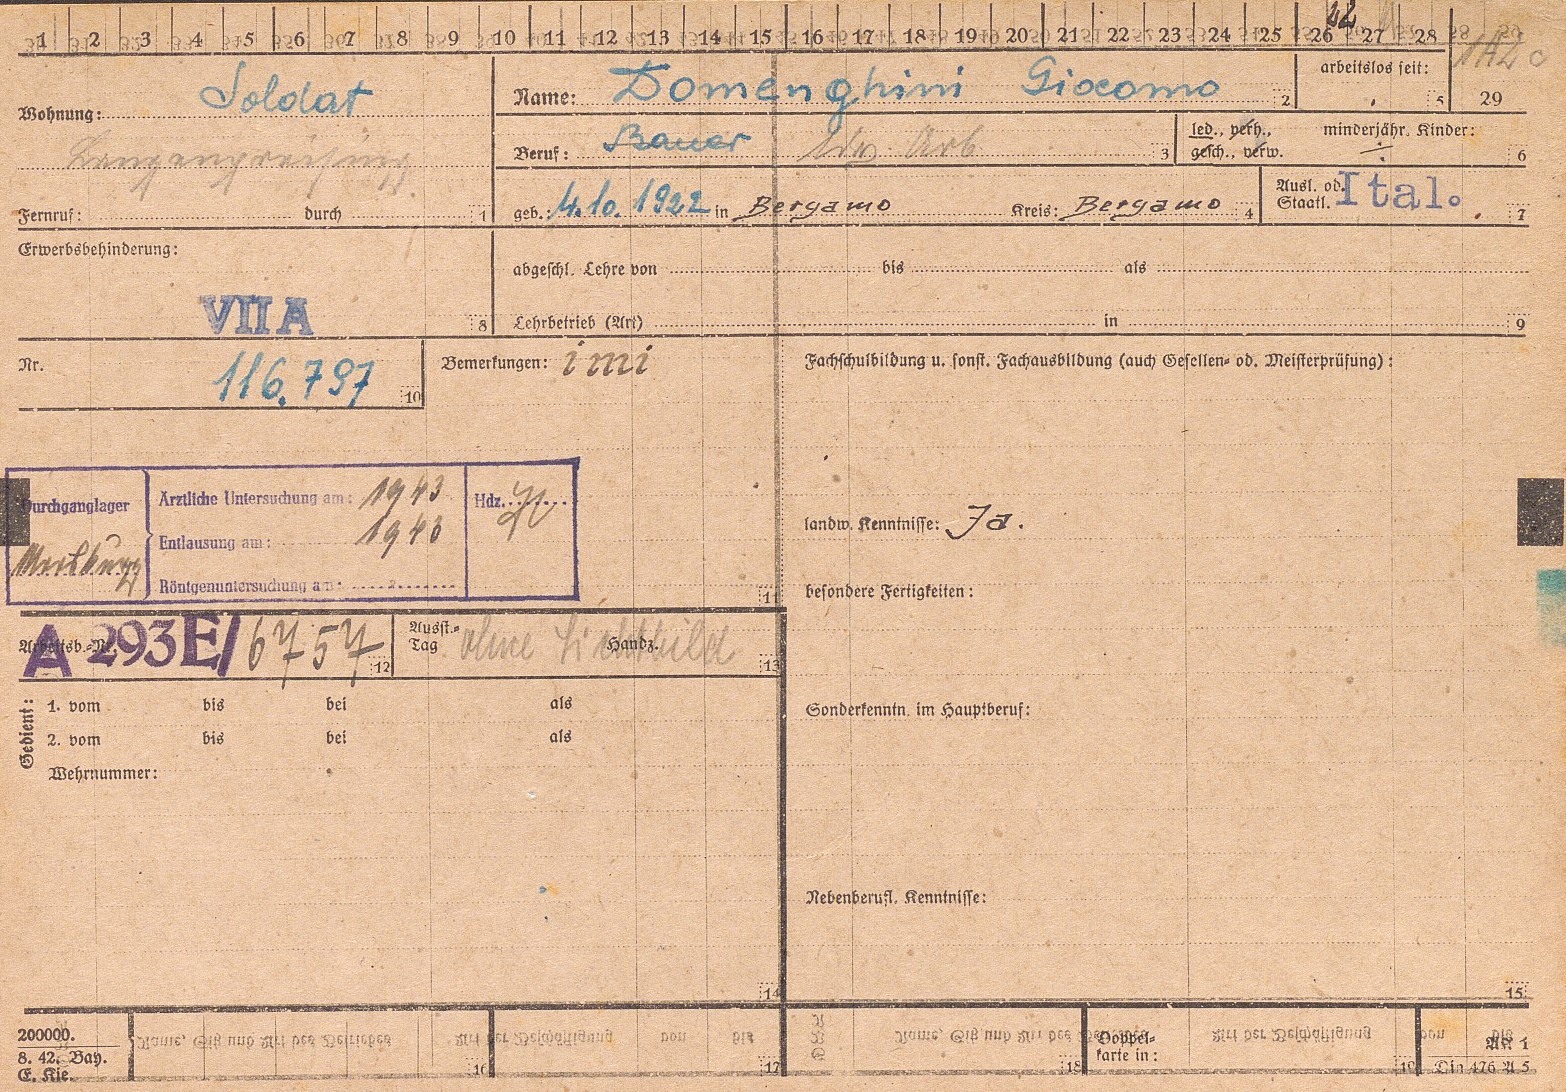 1 2 3 4 5 6 7 8 9 10 11 12 13 14 15 16 17 18 19 20 21 22 23 24 25 26 27 28
Wohnung: Soldat
Langenpreising
Fernruf: durch 1
Name: Domenghini Giacomo 2
arbeitslos seit: 5
29
Beruf: Bauer ldw. Arb 3
led., verh.,
gesch., verw.
minderjähr. Kinder: 6
geb.: 4.10.1922 in Bergamo Kreis: Bergamo 4
Ausl. od.
Staatl. Ital. 7
Erwerbsbehinderung:
VII A 8
abgeschl. Lehre von bis als
Lehrbetrieb (Art) in 9
Nr. 116.797 10
Bemerkungen: imi
Fachschulbildung u. sonst. Fachausbildung (auch Gesellen- od. Meisterprüfung):
Durchganglager
Ärztliche Untersuchung am: 1943
Hdz.
Entlausung am: 1943
Röntgenuntersuchung am:
11
landw. Kenntnisse: Ja.
besondere Fertigkeiten:
Arbeitsb.-Nr. A 293E/6757 12
Ausst.-
Tag ohne Lichtbild Handz. 13
Gedient:
1. vom bis bei als
2. vom bis bei als
Wehrnummer:
Sonderkenntn. im Hauptberuf:
Nebenberufl. Kenntnisse:
14
15
200000.
8. 42. Bay.
E. Kie.
16
17
18
Doppel-
karte in:
19
AK 1
Din 476 A 5